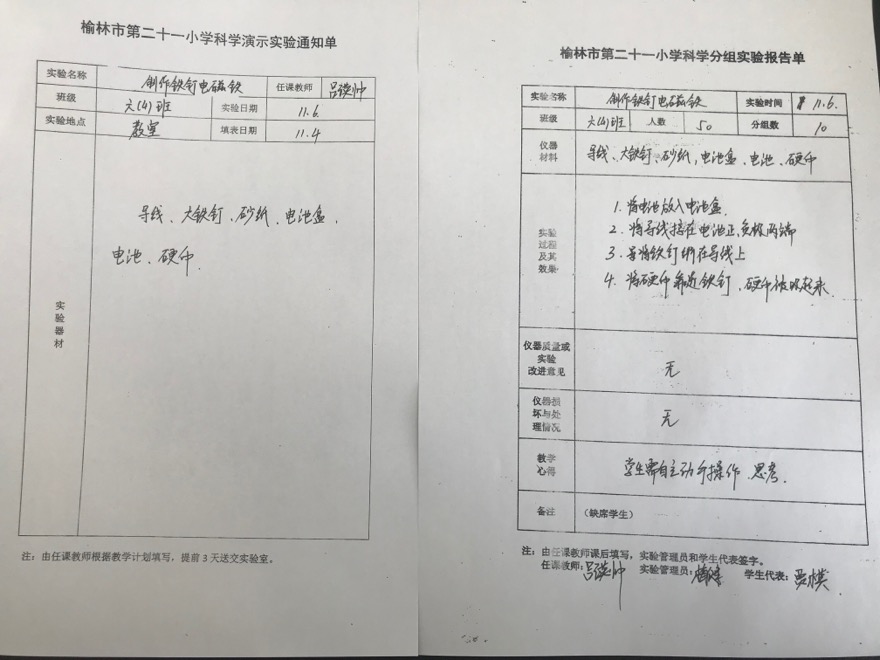 榆林市第二十一小学科学演示实验通知单
实验名称 制作铁钉电磁铁 任课教师
班级 六(4)班 实验日期 11.6.
实验地点 教室 填表日期 11.4
导线、大铁钉、砂纸、电池盒、
电池、硬币.
实验器材
注：由任课教师根据教学计划填写，提前3天送交实验室。
榆林市第二十一小学科学分组实验报告单
实验名称 制作铁钉电磁铁 实验时间 11.6.
班级 六(4)班 人数 50 分组数 10
仪器材料 导线、大铁钉、砂纸，电池盒、电池、硬币
实验过程及其效果
1. 将电池放入电池盒.
2. 将导线搭在电池正、负极两端
3. 将铁钉绑在导线上
4. 将硬币靠近铁钉、硬币被吸起来.
仪器质量或实验改进意见 无
仪器损坏与处理情况 无
教学心得 学生需自主动手操作、思考.
备注 （缺席学生）
注：由任课教师课后填写，实验管理员和学生代表签字。
任课教师： 实验管理员： 学生代表：